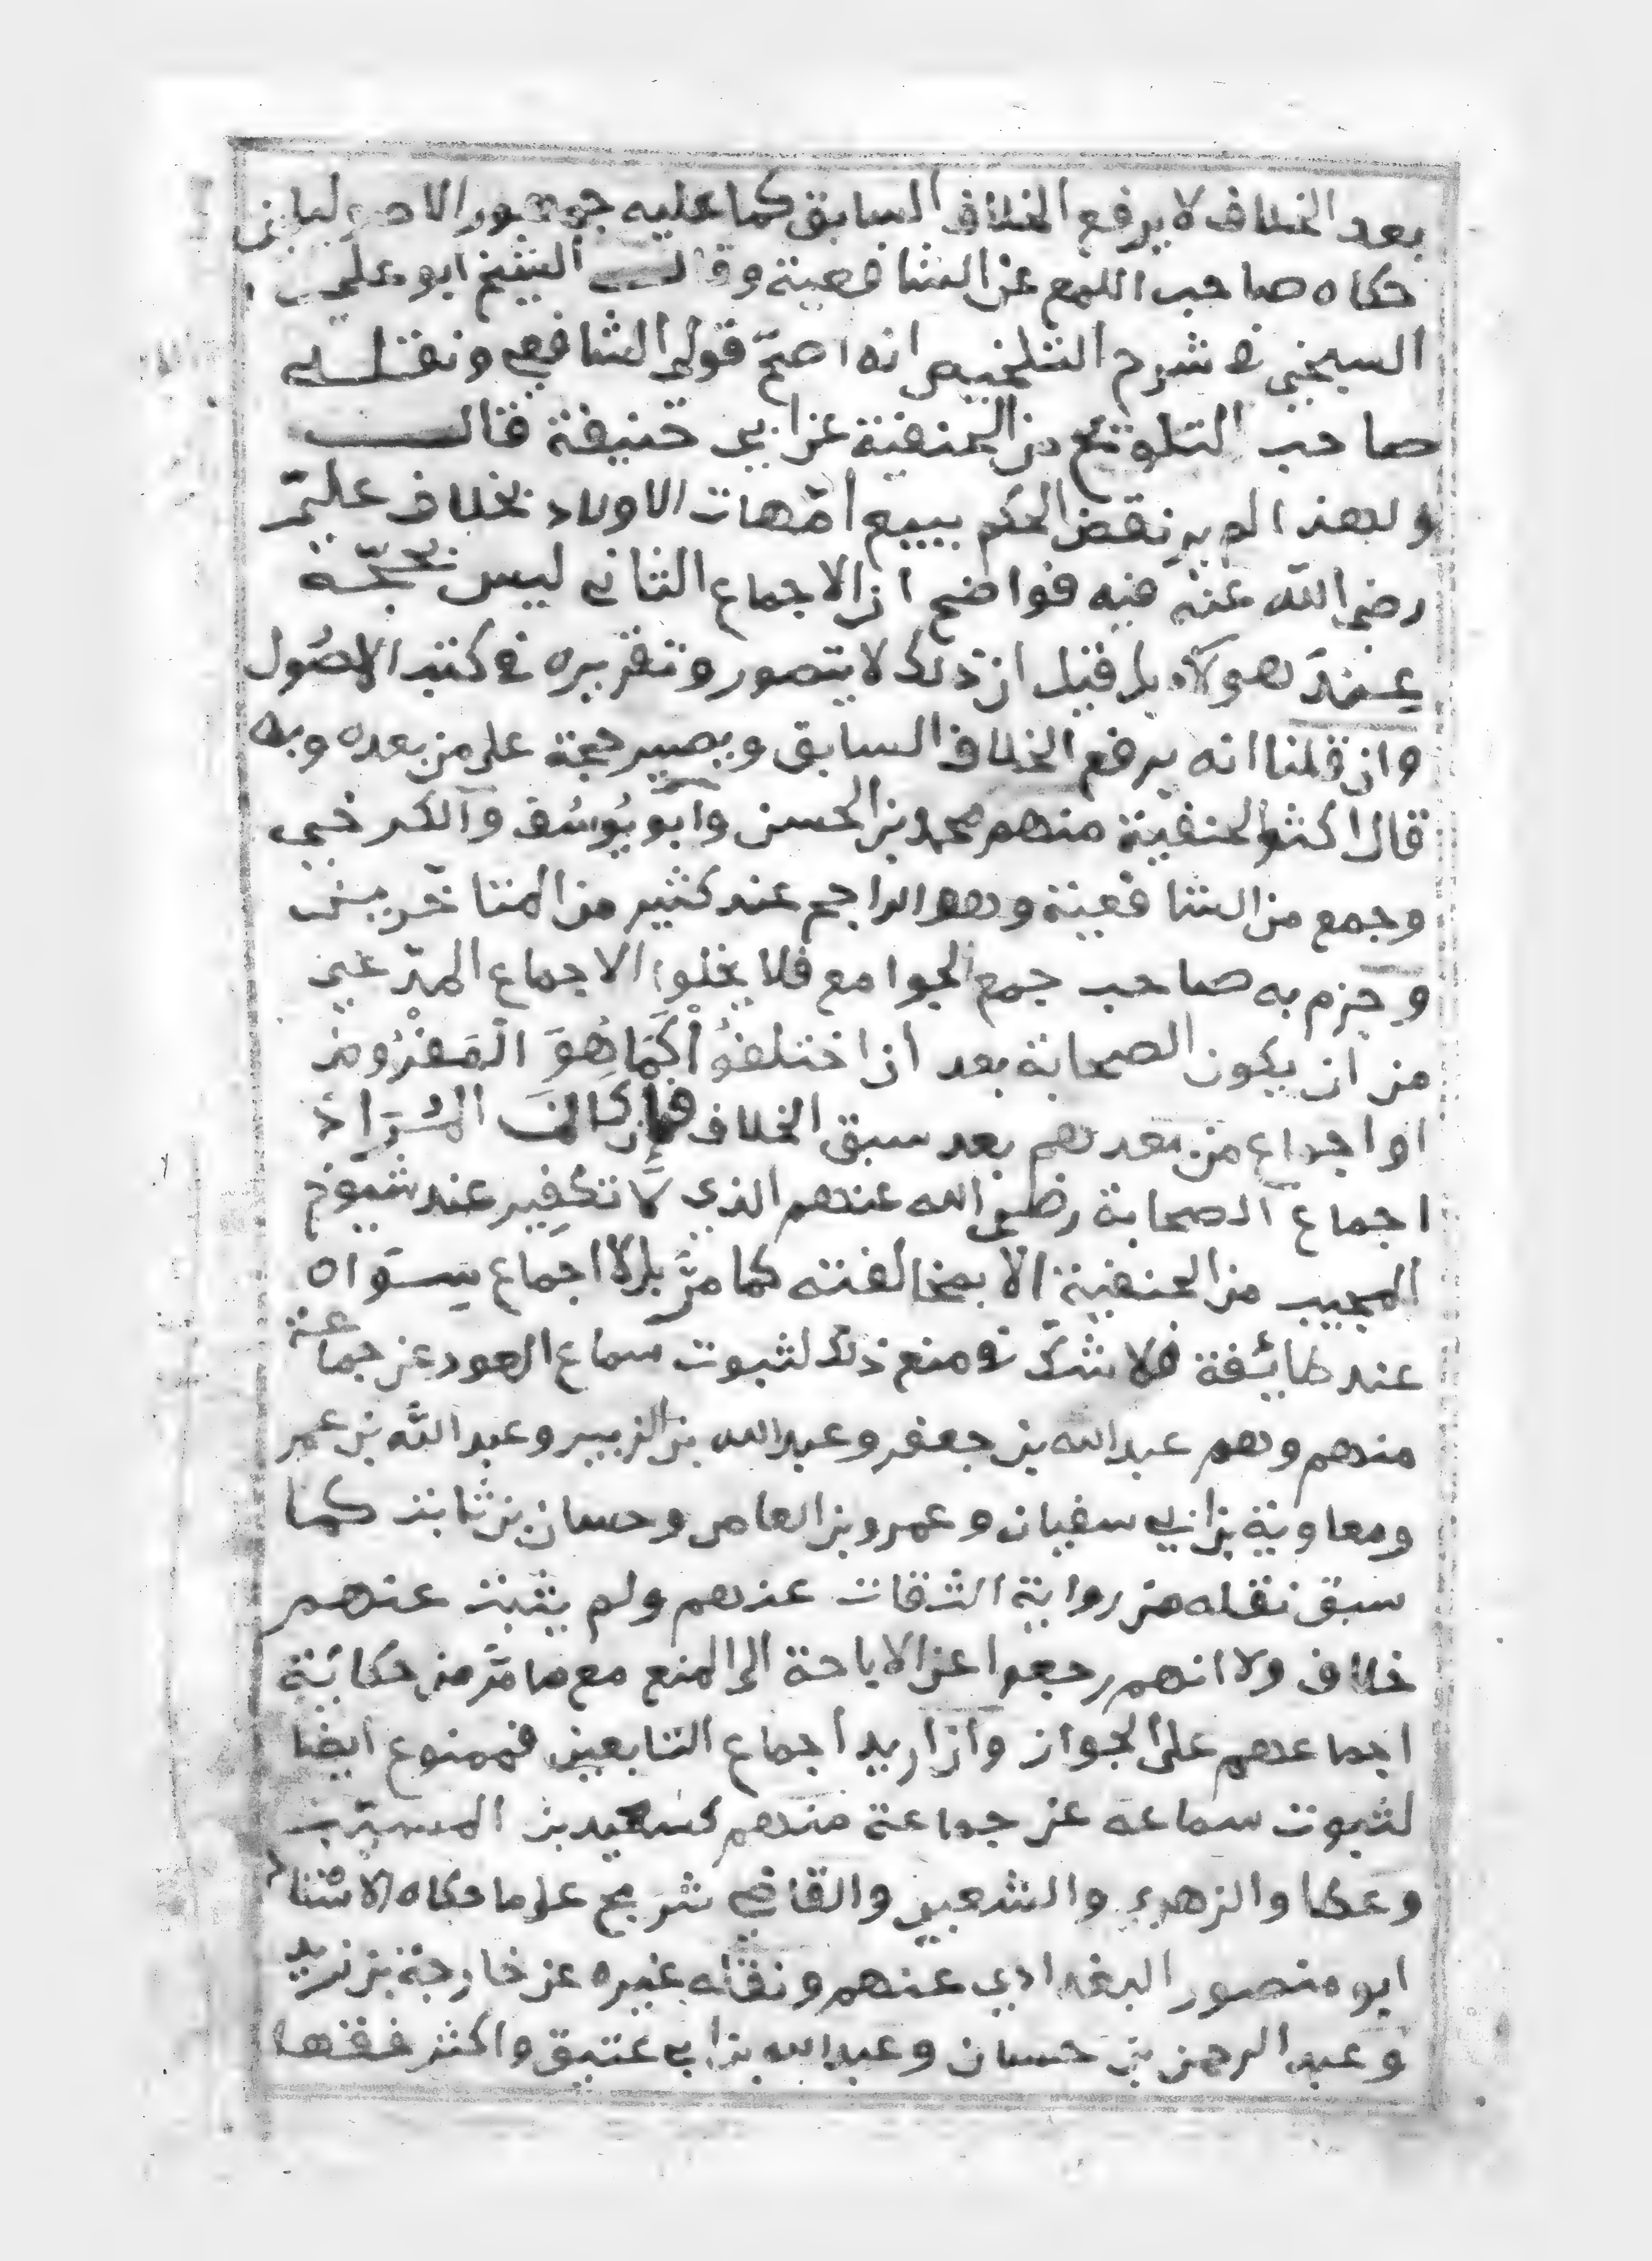 بعد الخلاف لا يرفع الخلاف السابق كما عليه جمهور الاصوليين
حكاه صاحب اللمع عن الشافعية وقال الشيخ ابو علي
السبخي في شرح التلخيص انه اصحّ قولي الشافعي ونقله
صاحب التلويح من الحنفية عن ابي حنيفة قال
ولهذا لم ير نقض الحكم ببيع امّهات الاولاد بخلاف عليّ
رضي الله عنه فيه فواضح ان الاجماع الثاني ليس بحجّة
عند هولاء بل قيل ان ذلك لا يتصور وتقريره في كتب الاصُول
وان قلنا انه يرفع الخلاف السابق ويصير حجة على من بعده وبه
قال اكثر الحنفية منهم محمد بن الحسن وابو يُوسُف والكرخي
وجمع من الشافعية وهو الراجح عند كثير من المتاخّرين
وجزم به صاحب جمع الجوامع فلا يخلوا الاجماع المدّعي
من ان يكون الصحابة بعد ان اختلفُوْا كَمَا هُوَ الْمَفْرُوض
او اجماع من بعدهم بعد سبق الخلاف فإن كانَ المُرَادُ
اجماع الصحابة رضي الله عنهم الذي لا تكفير عند شيوخ
المجيب من الحنفية الا بمخالفته كما مرّ بل لا اجماع سِوَاه
عند طائفة فلا شكّ في منع ذلك لثبوت سماع العود عن جماعة
منهم وهم عبد الله بن جعفر وعبد الله بن الزبير وعبد الله بن عمر
ومعاوية بن ابي سفيان وعمرو بن العاص وحسان بن ثابت كما
سبق نقله من رواية الثقات عنهم ولم يثبت عنهم
خلاف ولا انهم رجعوا عن الاباحة الى المنع مع ما مرّ من حكاية
اجماعهم على الجواز وان اريد اجماع التابعين فممنوع ايضا
لثبوت سماعه عن جماعة منهم كسعيد بن المسيّب
وعطا والزهري والشعبي والقاضي شريح على ما حكاه الاستاذ
ابو منصور البغدادي عنهم ونقله غيره عن خارجة بن زيد
وعبد الرحمن بن حسان وعبد الله بن ابي عتيق واكثر فقها